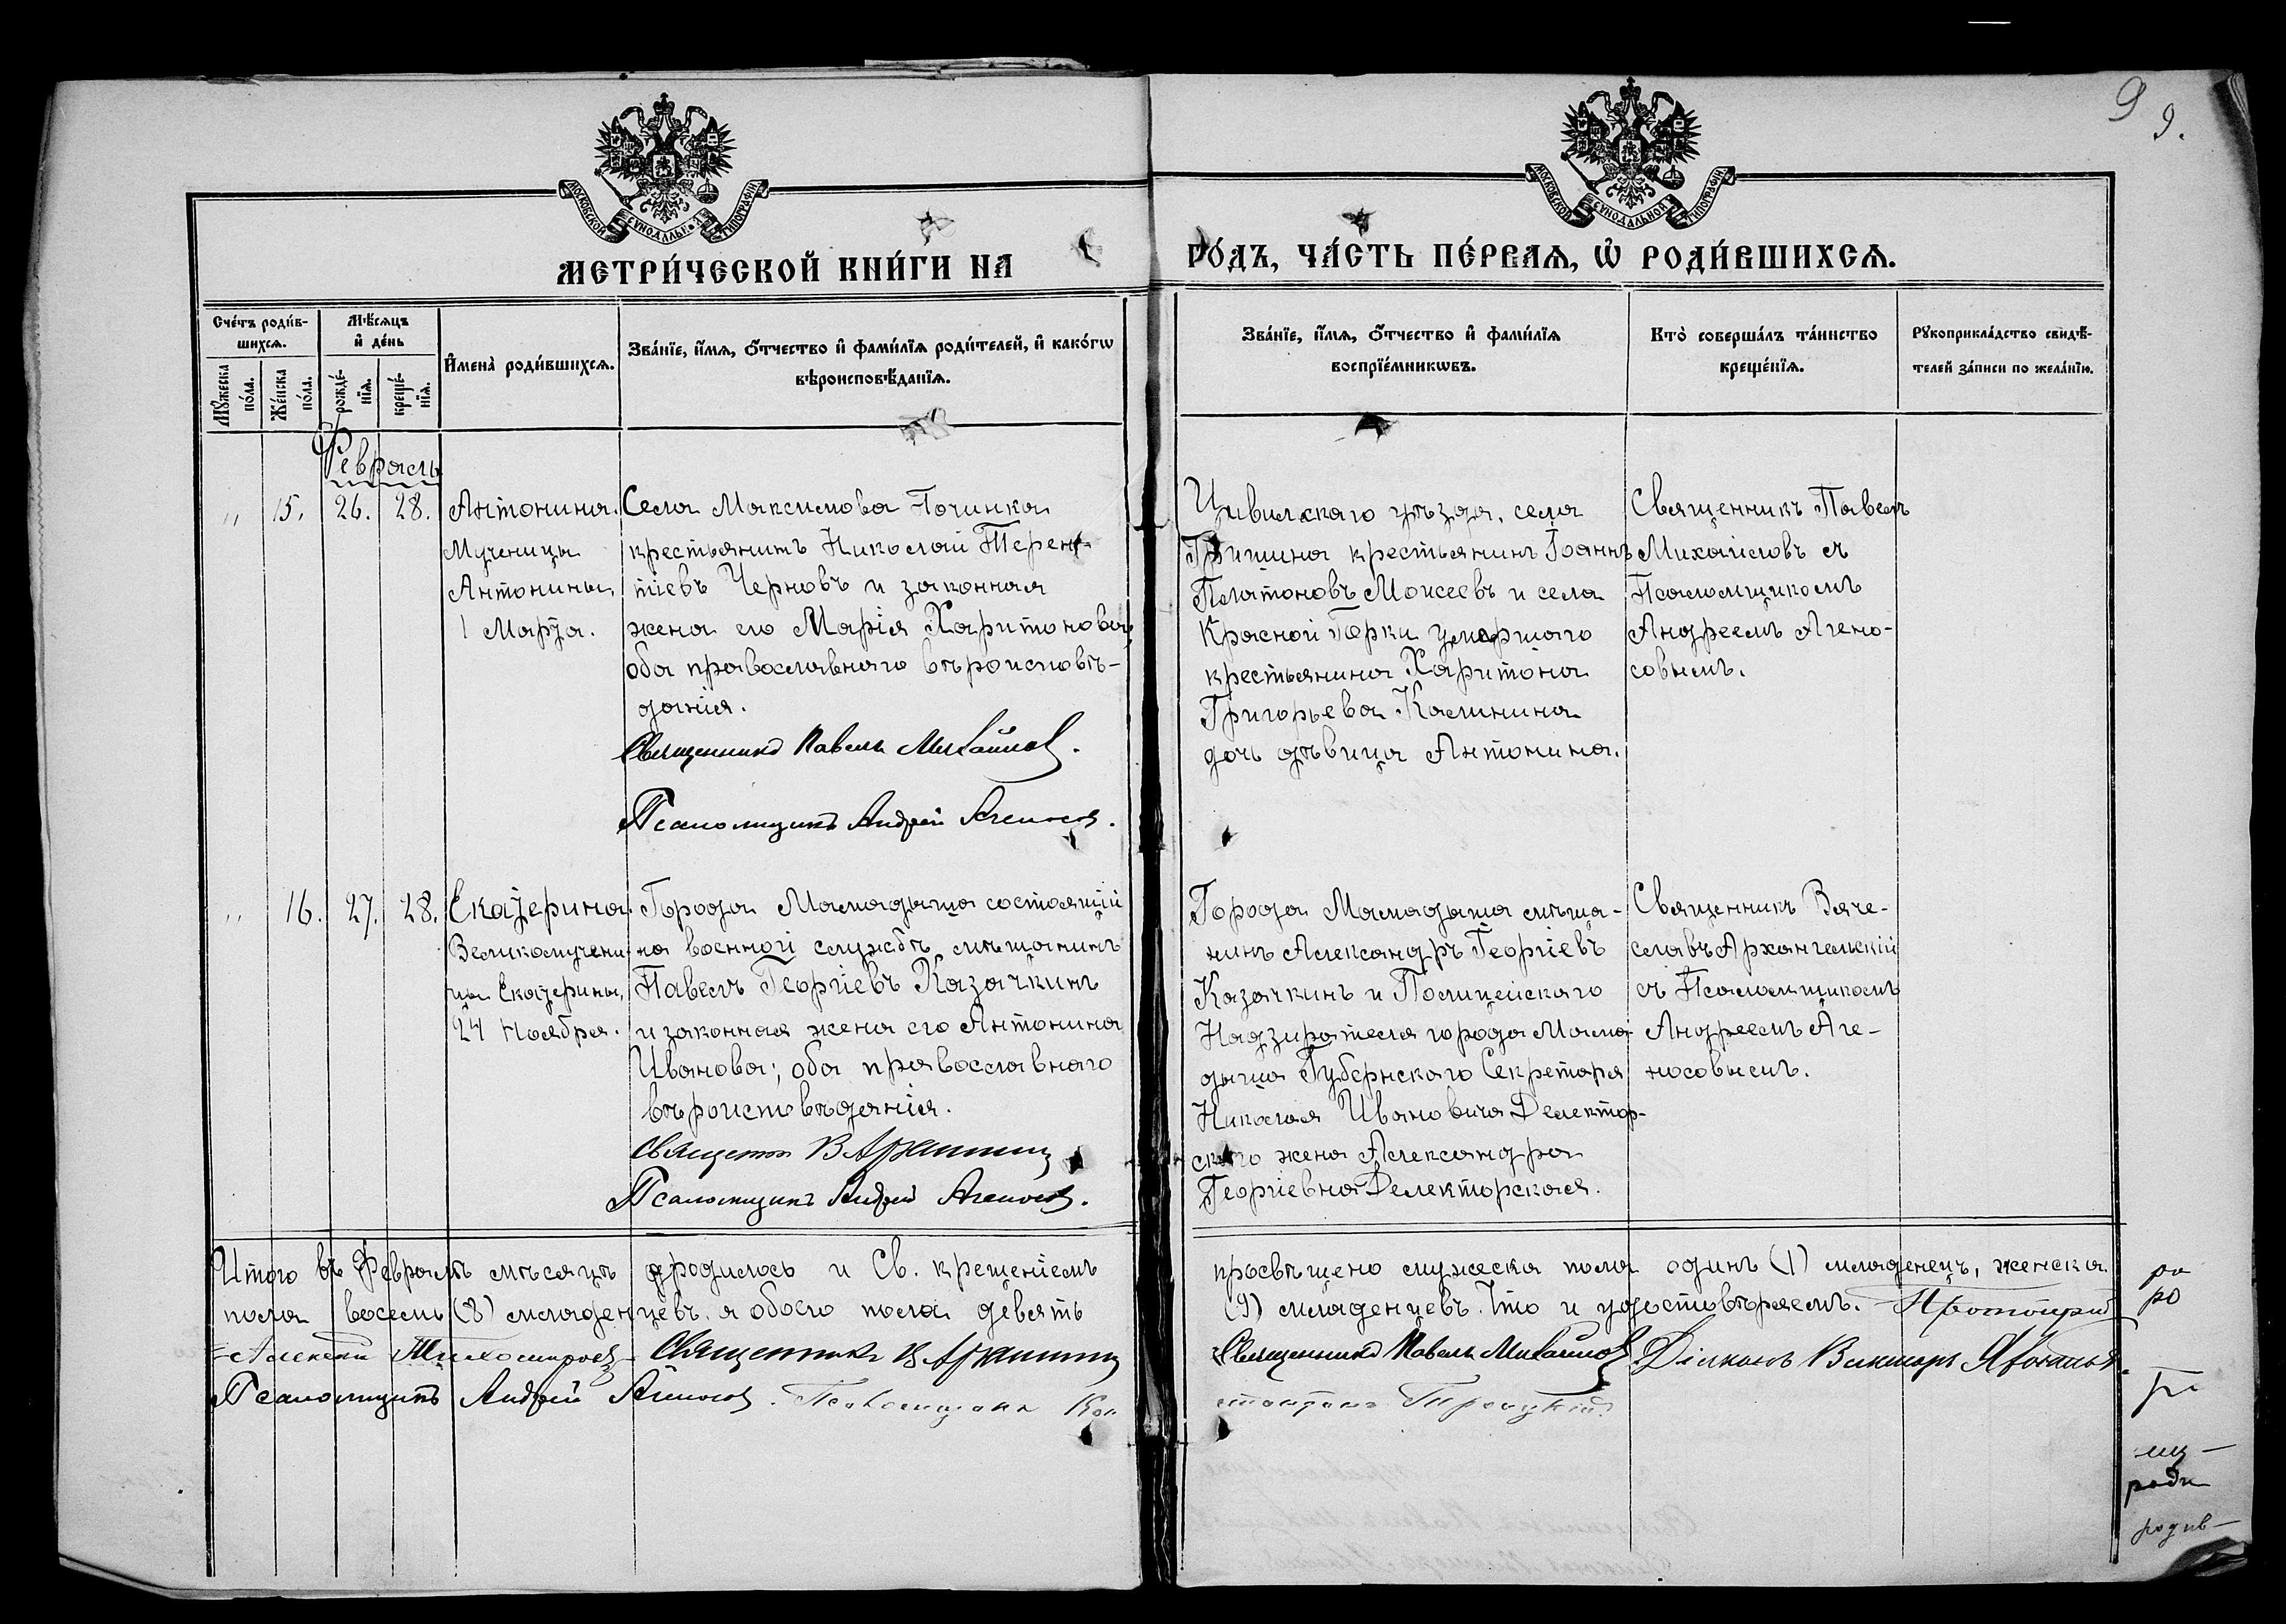 9
9.
МОСКОВСКОЙ СѴНОДАЛЬНОЙ ТИПОГРАФІИ
МОСКОВСКОЙ СѴНОДАЛЬНОЙ ТИПОГРАФІИ
МЕТРИ́ЧЕСКОЙ КНИ́ГИ НА
ГО́ДЪ, ЧА́СТЬ ПЕ́РВАѦ, Ѡ҆ РОДИ́ВШИХСѦ.
Сче́тъ роди́в-
шихсѧ.
Мꙋ́жеска по́ла.
Же́нска по́ла.
Мѣ́сѧцъ
и҆ де́нь
рожде́-
нїѧ.
креще́-
нїѧ.
И҆мена̀ роди́вшихсѧ.
Зва́нїе, и҆́мѧ, ѻ҆́тчество и҆ фами́лїѧ роди́телей, и҆ како́гѡ
вѣроисповѣ́данїѧ.
Зва́нїе, и҆́мѧ, ѻ҆́тчество и҆ фами́лїѧ
воспрїе́мникѡвъ.
Кто̀ соверша́лъ та́инство
креще́нїѧ.
Рꙋкоприкла́дство свидѣ́-
телей за́писи по жела́нїю.
Февраль
" 15. 26. 28.
Антонина.
Мученицы
Антонины,
1 Марта.
Села Максимова Починка
крестьянинъ Николай Терен-
тіевъ Черновъ и законная
жена его Марія Харитонова,
оба православнаго вѣроисповѣ-
данія.
Священникъ Павелъ Михайловъ.
Псаломщикъ Андрей Агеносовъ.
Цивильскаго уѣзда, села
Тришина крестьянинъ Іоаннъ
Платоновъ Моисеевъ и села
Красной Горки умершаго
крестьянина Харитона
Григорьева Калинина
дочь дѣвица Антонина.
Священникъ Павелъ
Михайловъ съ
Псаломщикомъ
Андреемъ Агено-
совымъ.
" 16. 27. 28.
Екатерина.
Великомучени-
цы Екатерины,
24 Ноября.
Города Мамадыша состоящій
на военной службѣ, мѣщанинъ
Павелъ Георгіевъ Казачкинъ
и законная жена его Антонина
Иванова; оба православнаго
вѣроисповѣданія.
Священникъ В Архангельскій
Псаломщикъ Андрей Агеносовъ.
Города Мамадыша мѣща-
нинъ Александръ Георгіевъ
Казачкинъ и Полицейскаго
Надзирателя города Мама-
дыша Губернскаго Секретаря
Николая Ивановича Делектор-
скаго жена Александра
Георгіевна Делекторская.
Священникъ Вяче-
славъ Архангельскій
съ Псаломщикомъ
Андреемъ Аге-
носовымъ.
Итого въ Февралѣ мѣсяцѣ родилось и Св. крещеніемъ просвѣщено мужеска пола одинъ (1) младенецъ, женска
пола восемь (8) младенцевъ, а обоего пола девять (9) младенцевъ. Что и удостовѣряемъ. Протоіерей
Алексій Тихомировъ Священникъ В Архангельскій Священникъ Павелъ Михайловъ Діаконъ Викторъ
Псаломщикъ Андрей Агеносовъ. Псаломщикъ Константинъ Троицкій.
ро
ро
роди
родив-